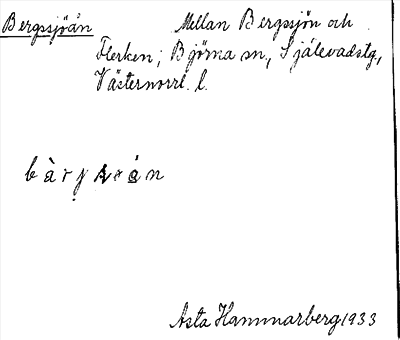 Bergssjöån Mellan Bergsjön och
Flerken; Björna sn, Själevadstg,
Västernorrl. l.
Asta Hammarberg 1933